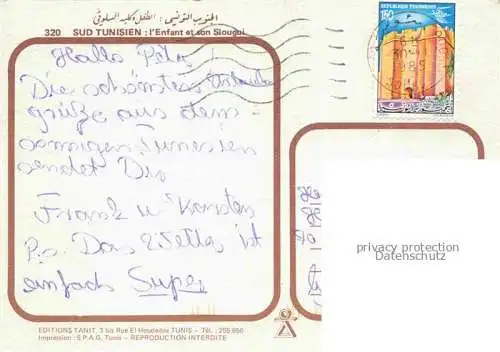 الجنوب التونسي : الطفل وكلبه السلوقي
320 SUD TUNISIEN : l'Enfant et son Slougui
REPUBLIQUE TUNISIENNE
Hallo Peter!
Die schönsten Urlaubs
grüße aus dem
sonnigen Tunesien
sendet Dir
Frank u. Karsten
P.S. Das Wetter ist
einfach Super
privacy protection
Datenschutz
EDITIONS TANIT, 3 bis Rue El Houdeibia TUNIS - Tél. : 255.950
Impression : E.P.A.G. Tunis - REPRODUCTION INTERDITE